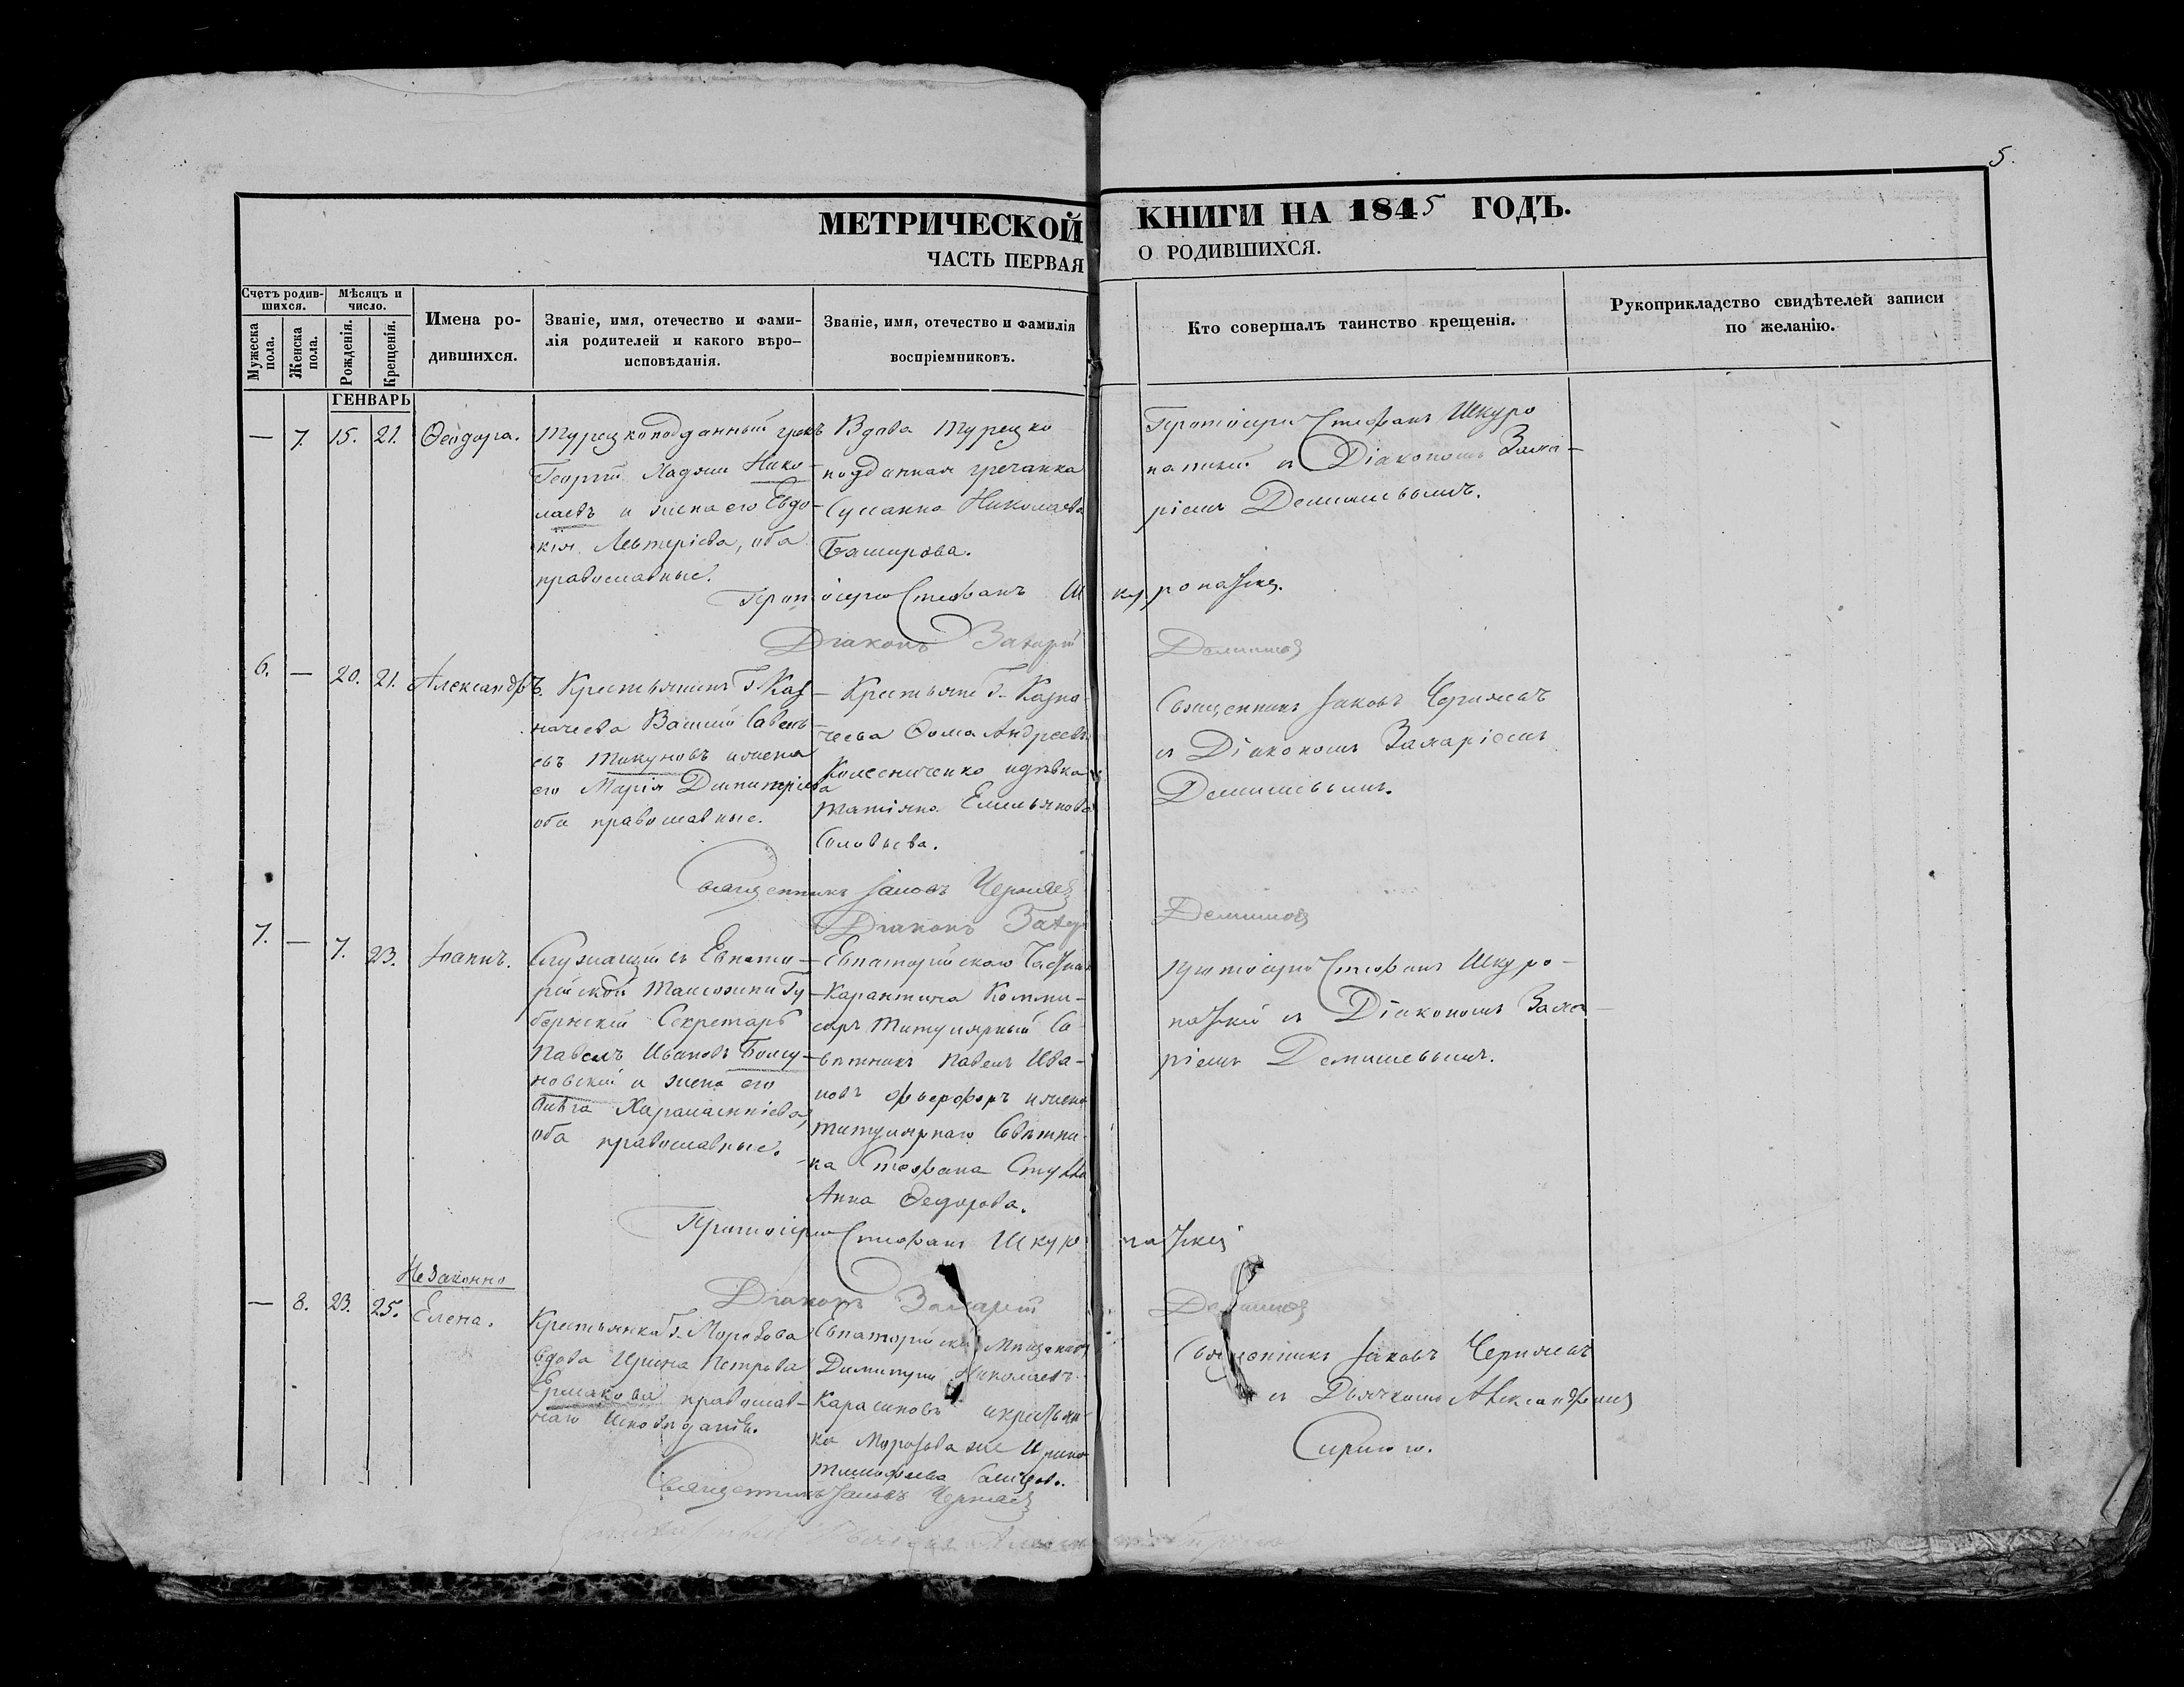 5.
МЕТРИЧЕСКОЙ КНИГИ НА 1845 ГОДЪ.
ЧАСТЬ ПЕРВАЯ О РОДИВШИХСЯ.
Счетъ родив-
шихся.
Мужеска пола.
Женска пола.
Мѣсяцъ и
число.
Рожденія.
Крещенія.
Имена ро-
дившихся.
Званіе, имя, отечество и фами-
лія родителей и какого вѣро-
исповѣданія.
Званіе, имя, отечество и фамилія
воспріемниковъ.
Кто совершалъ таинство крещенія.
Рукоприкладство свидѣтелей записи
по желанію.
ГЕНВАРЬ
— 7. 15. 21. Ѳеодора.
Турецкоподданный грекъ
Георгій Хаджи Нико-
лаевъ и жена его Евдо-
кія Левтеріева, оба
православные.
Вдова Турецко
подданная гречанка
Сусанна Николаева
Баширова.
Протоіерей Стефанъ Шкуро
патскій съ Діакономъ Заха-
ріемъ Демишевымъ.
Протоіерей Стефанъ Шкуропатскій
Діаконъ Захарій
6. — 20. 21. Александръ.
Крестьянинъ Г. Каз-
начеева Василій Савель-
евъ Тикуновъ и жена
его Марія Димитріева
оба православные.
Крестьяне Г. Казна-
чеева Ѳома Андреевъ
Колесниченко и дѣвка
Татіяна Емельянова
Соловьева.
Священникъ Іаковъ Чернявъ
съ Діакономъ Захаріемъ
Демишевымъ.
Священникъ Іаковъ
Діаконъ
7. — 7. 23. Іоаннъ.
Служащій въ Евпато-
рійской Таможни Гу-
бернскій Секретарь
Павелъ Ивановъ
и жена его
оба православные.
Евпаторійскаго
Карантина Комми-
саръ Титулярный Со-
вѣтникъ Павелъ Ива-
новъ и жена
титулярнаго Совѣтни-
ка Стефана
Анна Ѳедорова.
Протоіерей Стефанъ Шкуро-
патскій съ Діакономъ Заха-
ріемъ Демишевымъ.
Протоіерей Стефанъ Шкуропатскій
Діаконъ Захарій
Незаконно
— 8. 23. 25. Елена.
Крестьянка Г. Морозова
вдова Ирина Петрова
Ермакова православ-
наго исповѣданія.
Евпаторійскій Мѣщанинъ
Димитрій Николаевъ
и крестьян-
ка Морозова же Ирина
Тимофеева
Священникъ Іаковъ Чернявъ
съ Дьячкомъ Александромъ
Священникъ Іаковъ